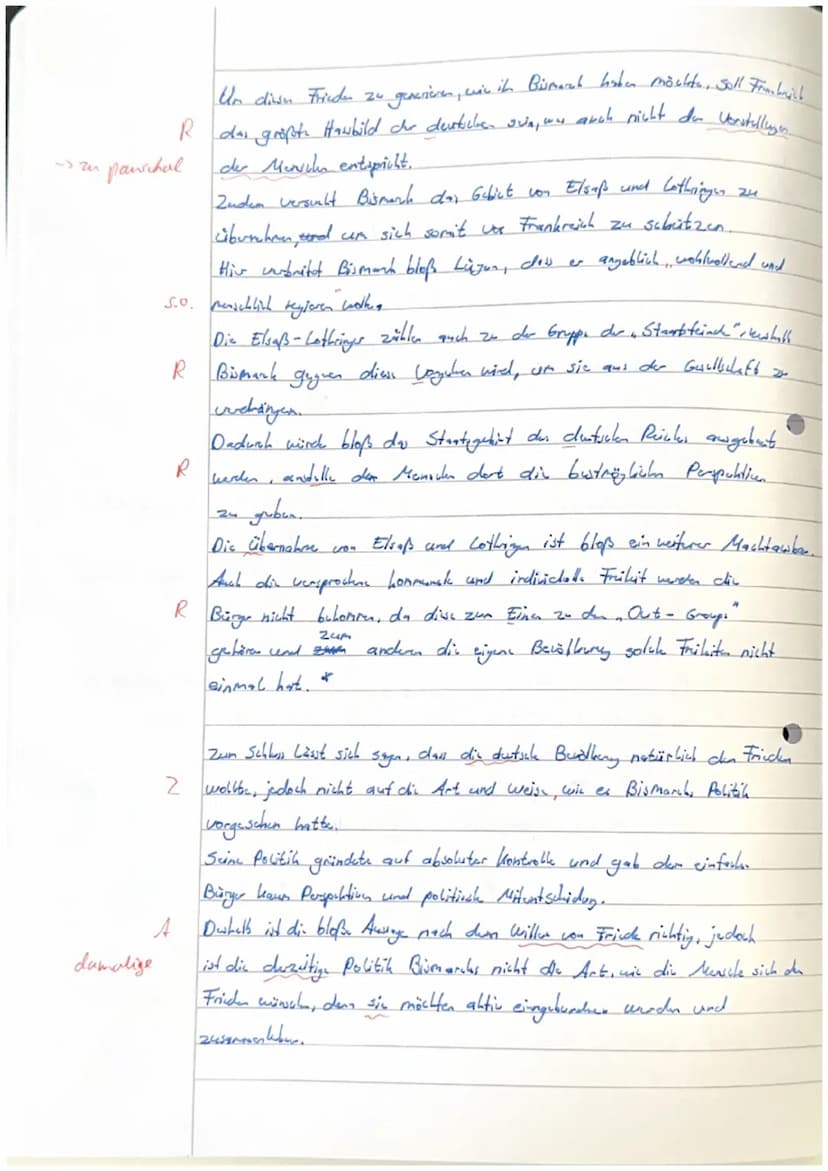 Um diesen Frieden zu generieren, wie ih Bismarck haben möchte, soll Frankreich
R das größte Hassbild der deutschen sein, was auch nicht den Vorstellungen
-> zu pauschal der Menschen entspricht.
Zudem versucht Bismarck das Gebiet von Elsaß und Lothringen zu
übernehmen, um sich somit vor Frankreich zu schützen.
Hier verbreitet Bismarck bloß Lügen, dass er angeblich „wohlwollend und
s.o. menschlich regieren" wolle,
Die Elsaß-Lothringer zählen auch zu der Gruppe der „Staatsfeinde", weshalb
R Bismarck gegen diese vorgehen wird, um sie aus der Gesellschaft zu
verdrängen.
Dadurch würde bloß das Staatsgebiet des deutschen Reiches ausgebaut
R werden, anstelle den Menschen dort die bestmöglichen Perspektiven
zu geben.
Die Übernahme von Elsaß und Lothringen ist bloß ein weiterer Machtausbau.
Auch die versprochene kommunale und individuelle Freiheit werden die
R Bürger nicht bekommen, da diese zum Einen zu den „Out-Groups"
gehören und zum anderen die eigene Bevölkerung solch Freiheiten nicht
einmal hat. *
Zum Schluss lässt sich sagen, dass die deutsche Bevölkerung natürlich den Frieden
Z wollte, jedoch nicht auf die Art und Weise, wie es Bismarcks Politik
vorgesehen hatte.
Seine Politik gründete auf absoluter Kontrolle und gab dem einfachen
Bürger kaum Perspektiven und politische Mitentscheidung.
A Deshalb ist die bloße Aussage nach dem Willen von Friede richtig, jedoch
damalige ist die derzeitige Politik Bismarcks nicht die Art, wie die Mensche sich den
Frieden wünschen, denn sie möchten aktiv eingebunden werden und
zusammenleben.